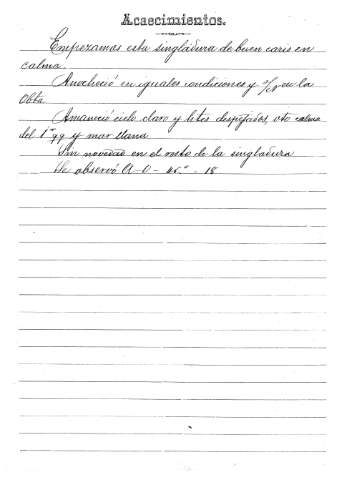 Acaecimientos.
Empezamos esta singladura de buen caris en
calma.
Anocheció en iguales condiciones y s/n de la
Obta
Amaneció cielo claro y htes despejados, vto calma
del 1er qq y mar llana
Sin novedad en el resto de la singladura
Se observó A-O-45º-18